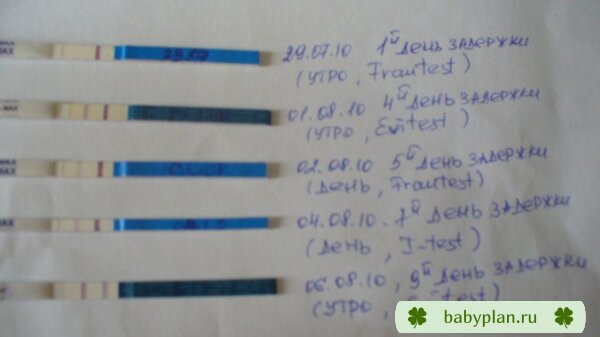 29.07
29.07.10 1й день задержки
(утро, Frautest)
01.08.10 4й день задержки
(утро, Evitest)
02.08
02.08.10 5й день задержки
(день, Frautest)
04.08.10 - 7й день задержки
(день, I-test)
06.08.10, 9й день задержки
(утро,
babyplan.ru
MAX